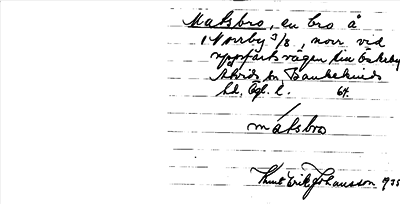 Matsbro, en bro å
Norrby 3/8, norr vid
uppfartsvägen till
Bankekinds
hd, Ögl. l. 64.
matsbro
Knut Erik Johansson 1935